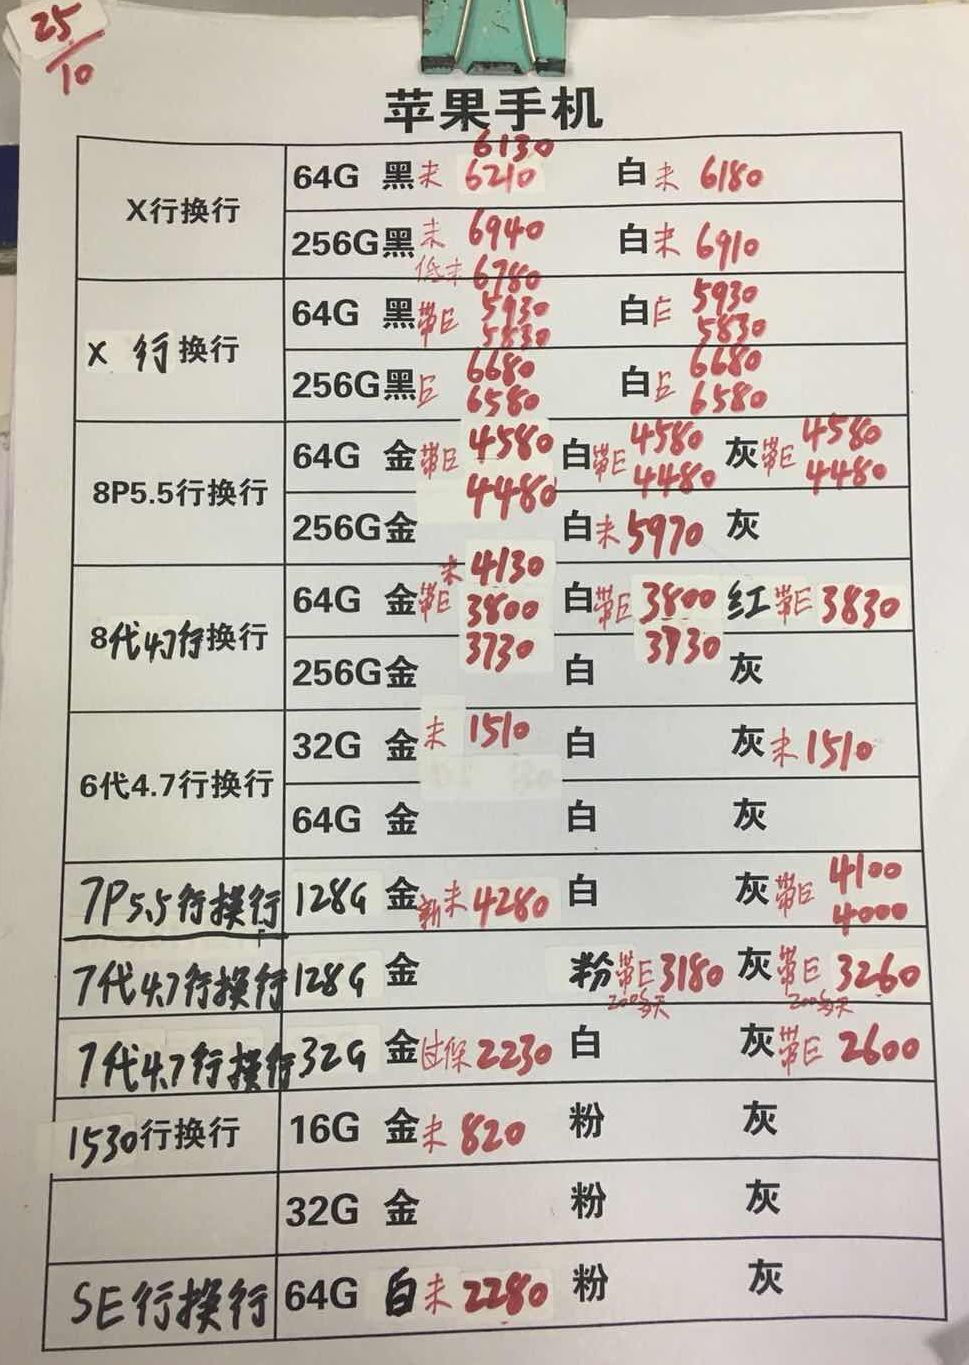 25/10
苹果手机
6130
X行换行 64G 黑未 6210 白未 6180
256G黑未 6940 白未 6910
低未 6780
X 行换行 64G 黑带E 5930 白E 5930
5830 5830
256G黑E 6680 白E 6680
6580 6580
8P5.5行换行 64G 金带E 4580 白带E 4580 灰带E 4580
4480 4480 4480
256G金 白未5970 灰
未 4130
8代4.7行换行 64G 金带E 3800 白带E 3800 红带E 3830
3730 3730
256G金 白 灰
6代4.7行换行 32G 金未 1510 白 灰未1510
64G 金 白 灰
7P5.5行换行 128G 金新未4280 白 灰带E 4100
4000
7代4.7行换行 128G 金 粉带E3180 灰带E 3260
200多天 200多天
7代4.7行换行 32G 金过保2230 白 灰带E 2600
1530行换行 16G 金未 820 粉 灰
32G 金 粉 灰
SE行换行 64G 白未2280 粉 灰